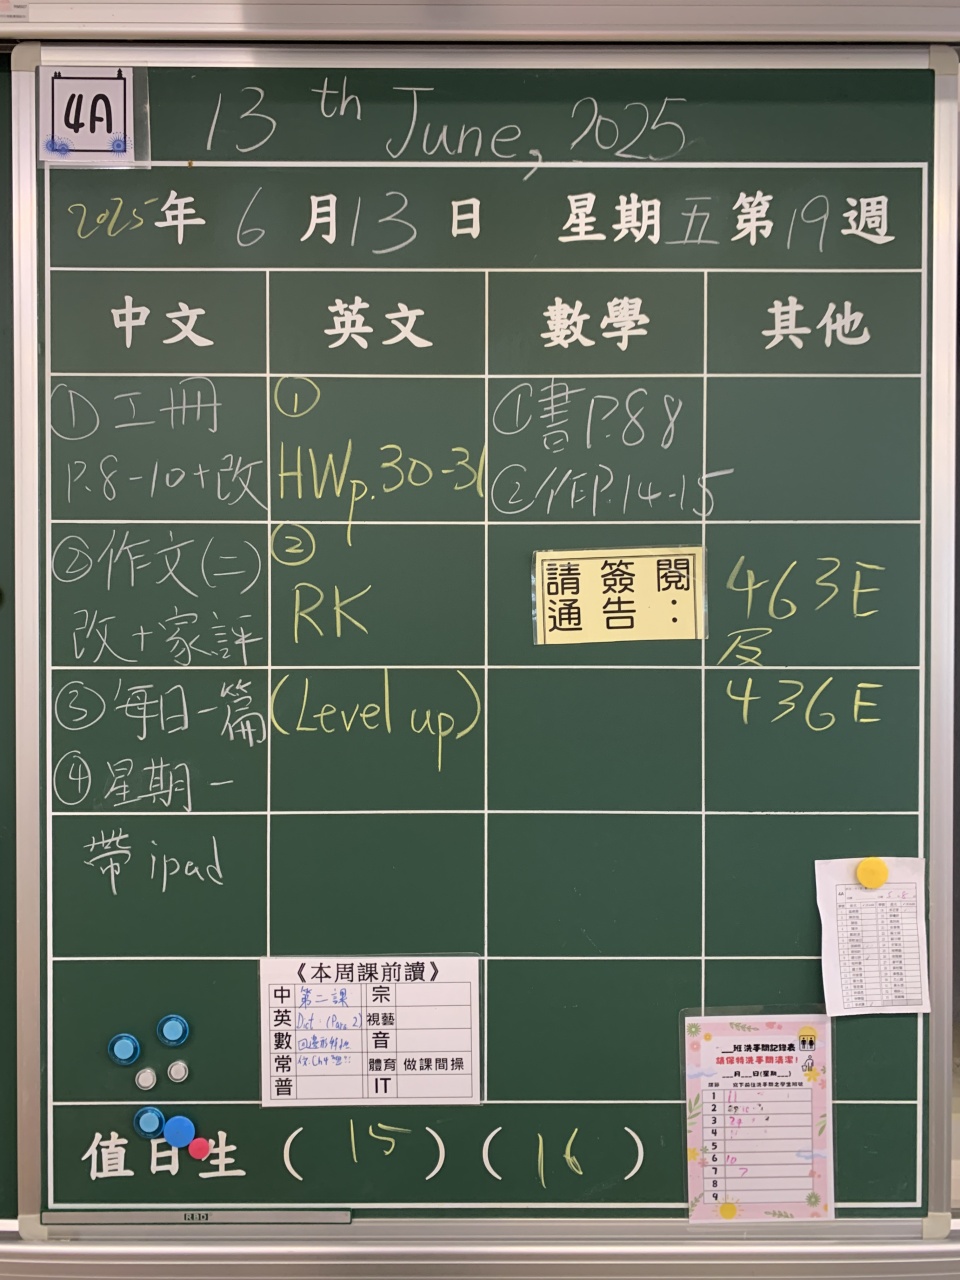 4A
13th June, 2025
2025年6月13日 星期五第19週
中文 英文 數學 其他
①工冊
P.8-10+改
②作文(二)
改+家評
③每日一篇
④星期一
帶ipad
①
HWp.30-31
②
RK
(Level up)
①書P.88
②作P.14-15
請簽閱
通告：
463E
及
436E
《本周課前讀》
中 第二課 宗
英 Dict. (Para 2) 視藝
數 四邊形特性 音
常 Ch4 體育 做課間操
普 IT
值日生 (15)(16)
RBD
4A
___班洗手間記錄表
請保持洗手間清潔！
___月___日(星期___)
1 11
2
3 24
4
5
6 10
7 7
8
9